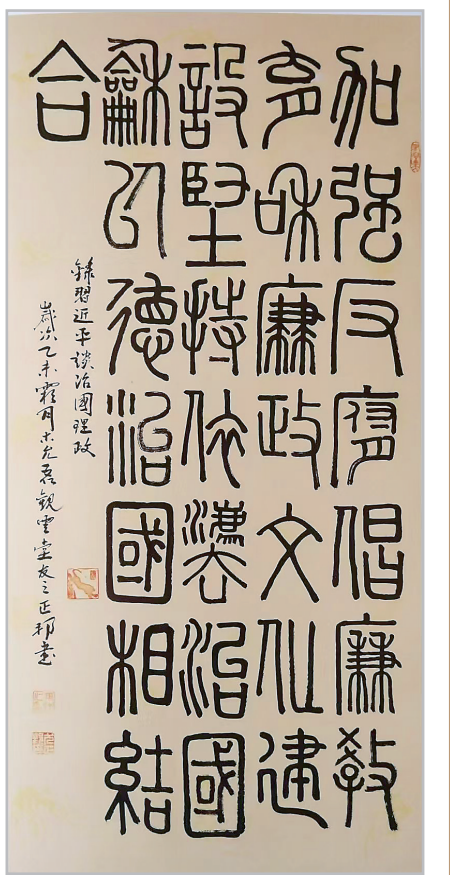 加强反腐倡廉教
育和廉政文化建
設堅持依灋治國
龢以德治國相結
合
錄習近平談治國理政
歲次乙未霜月 觀雲堂友之正邦書